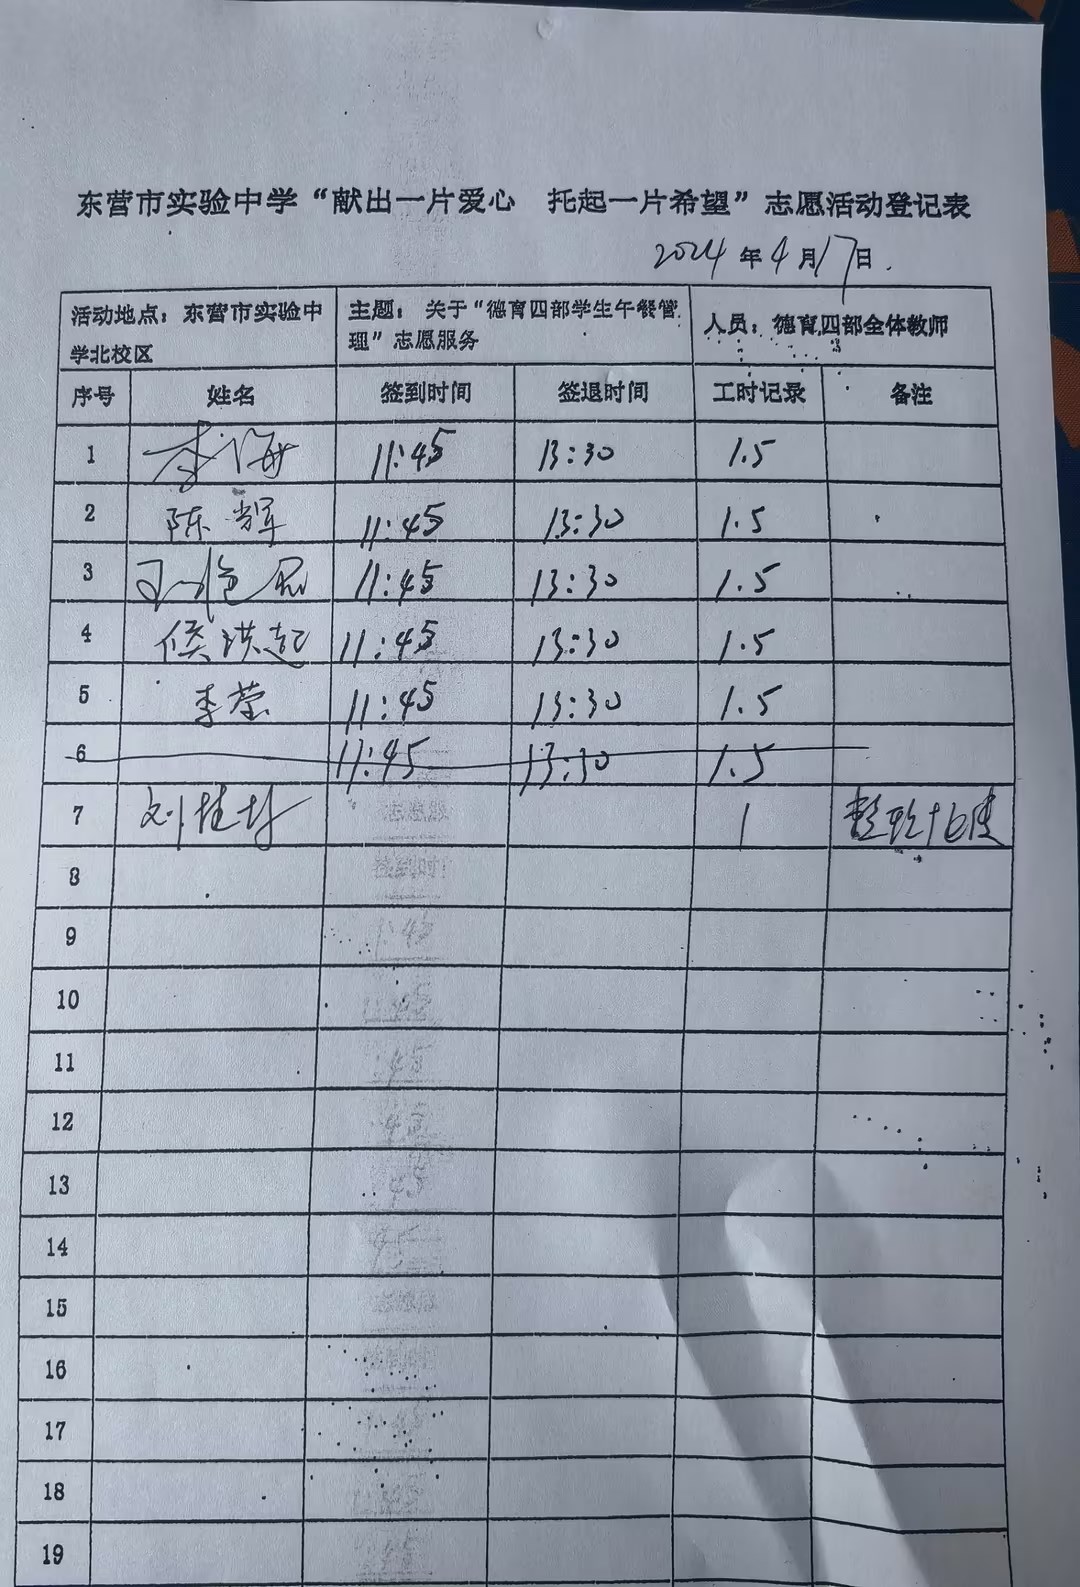 东营市实验中学“献出一片爱心 托起一片希望”志愿活动登记表
2024年4月17日.
活动地点：东营市实验中学北校区 主题：关于“德育四部学生午餐管理”志愿服务 人员：德育四部全体教师
序号 姓名 签到时间 签退时间 工时记录 备注
1 李海 11:45 13:30 1.5
2 陈辉 11:45 13:30 1.5
3 11:45 13:30 1.5
4 侯洪起 11:45 13:30 1.5
5 李莹 11:45 13:30 1.5
6 11:45 13:30 1.5
7 刘 1
8
9
10
11
12
13
14
15
16
17
18
19